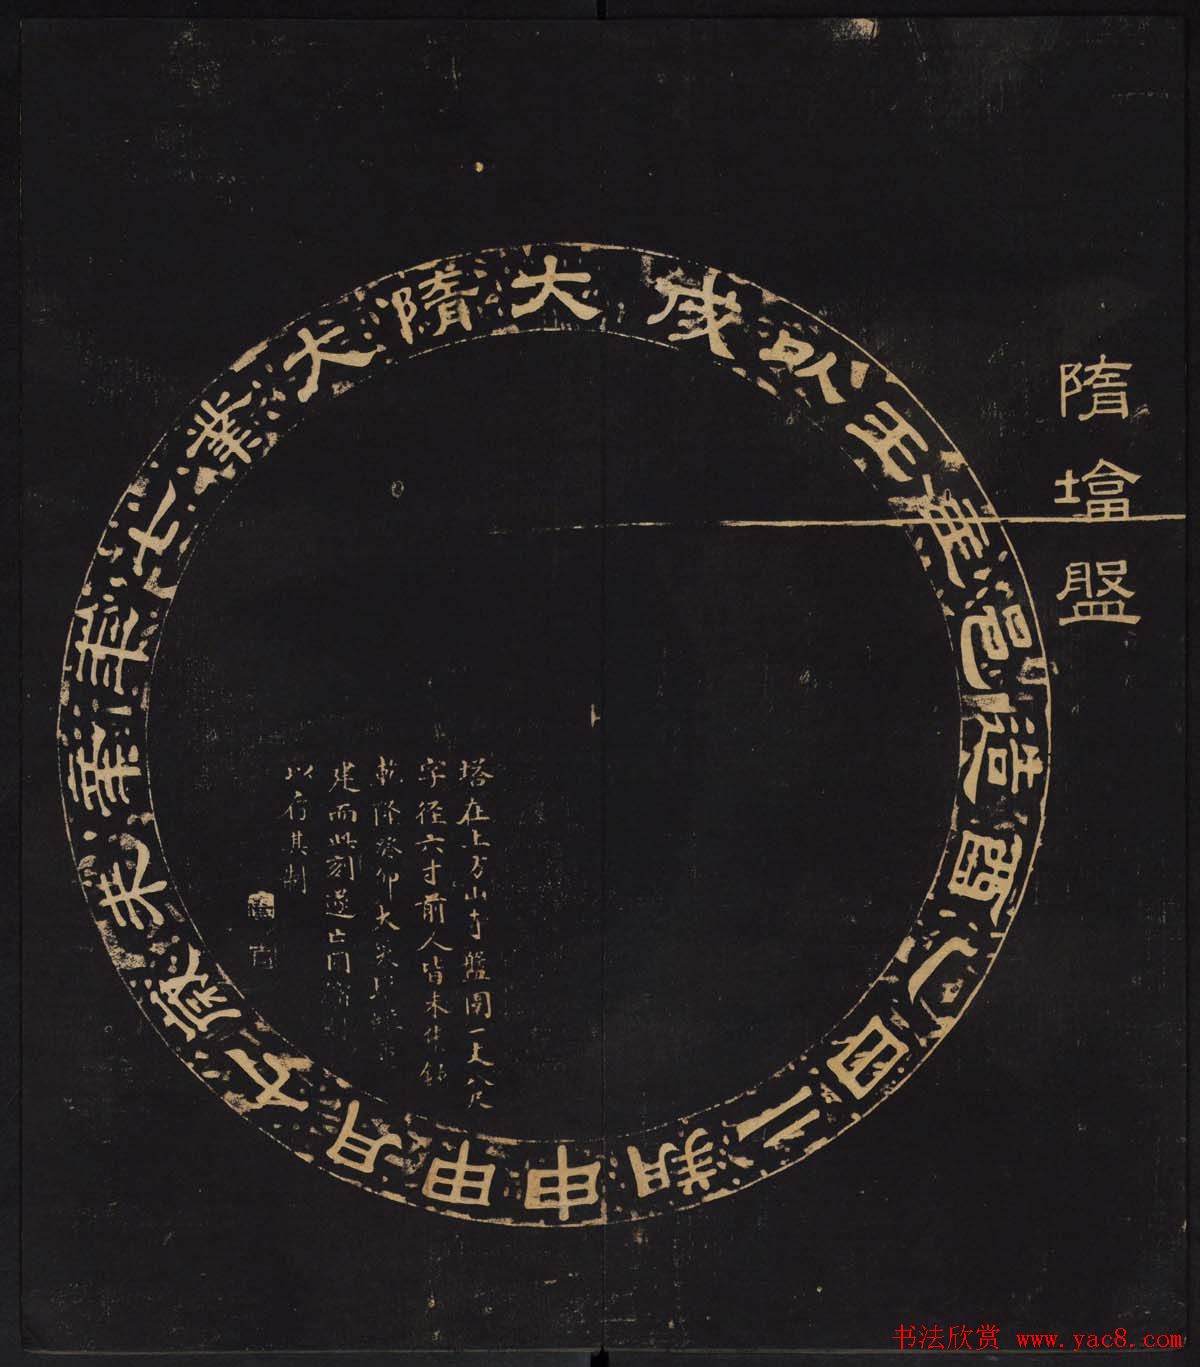 隋墖盤
大隋大業七年辛未歲七月甲申朔二日乙酉造邑王以成
塔在上方山寺盤圍一丈八尺
字徑六寸前人皆未著錄
乾隆癸卯大
建而此刻遂亡
以存其制
书法欣赏 www.yac8.com